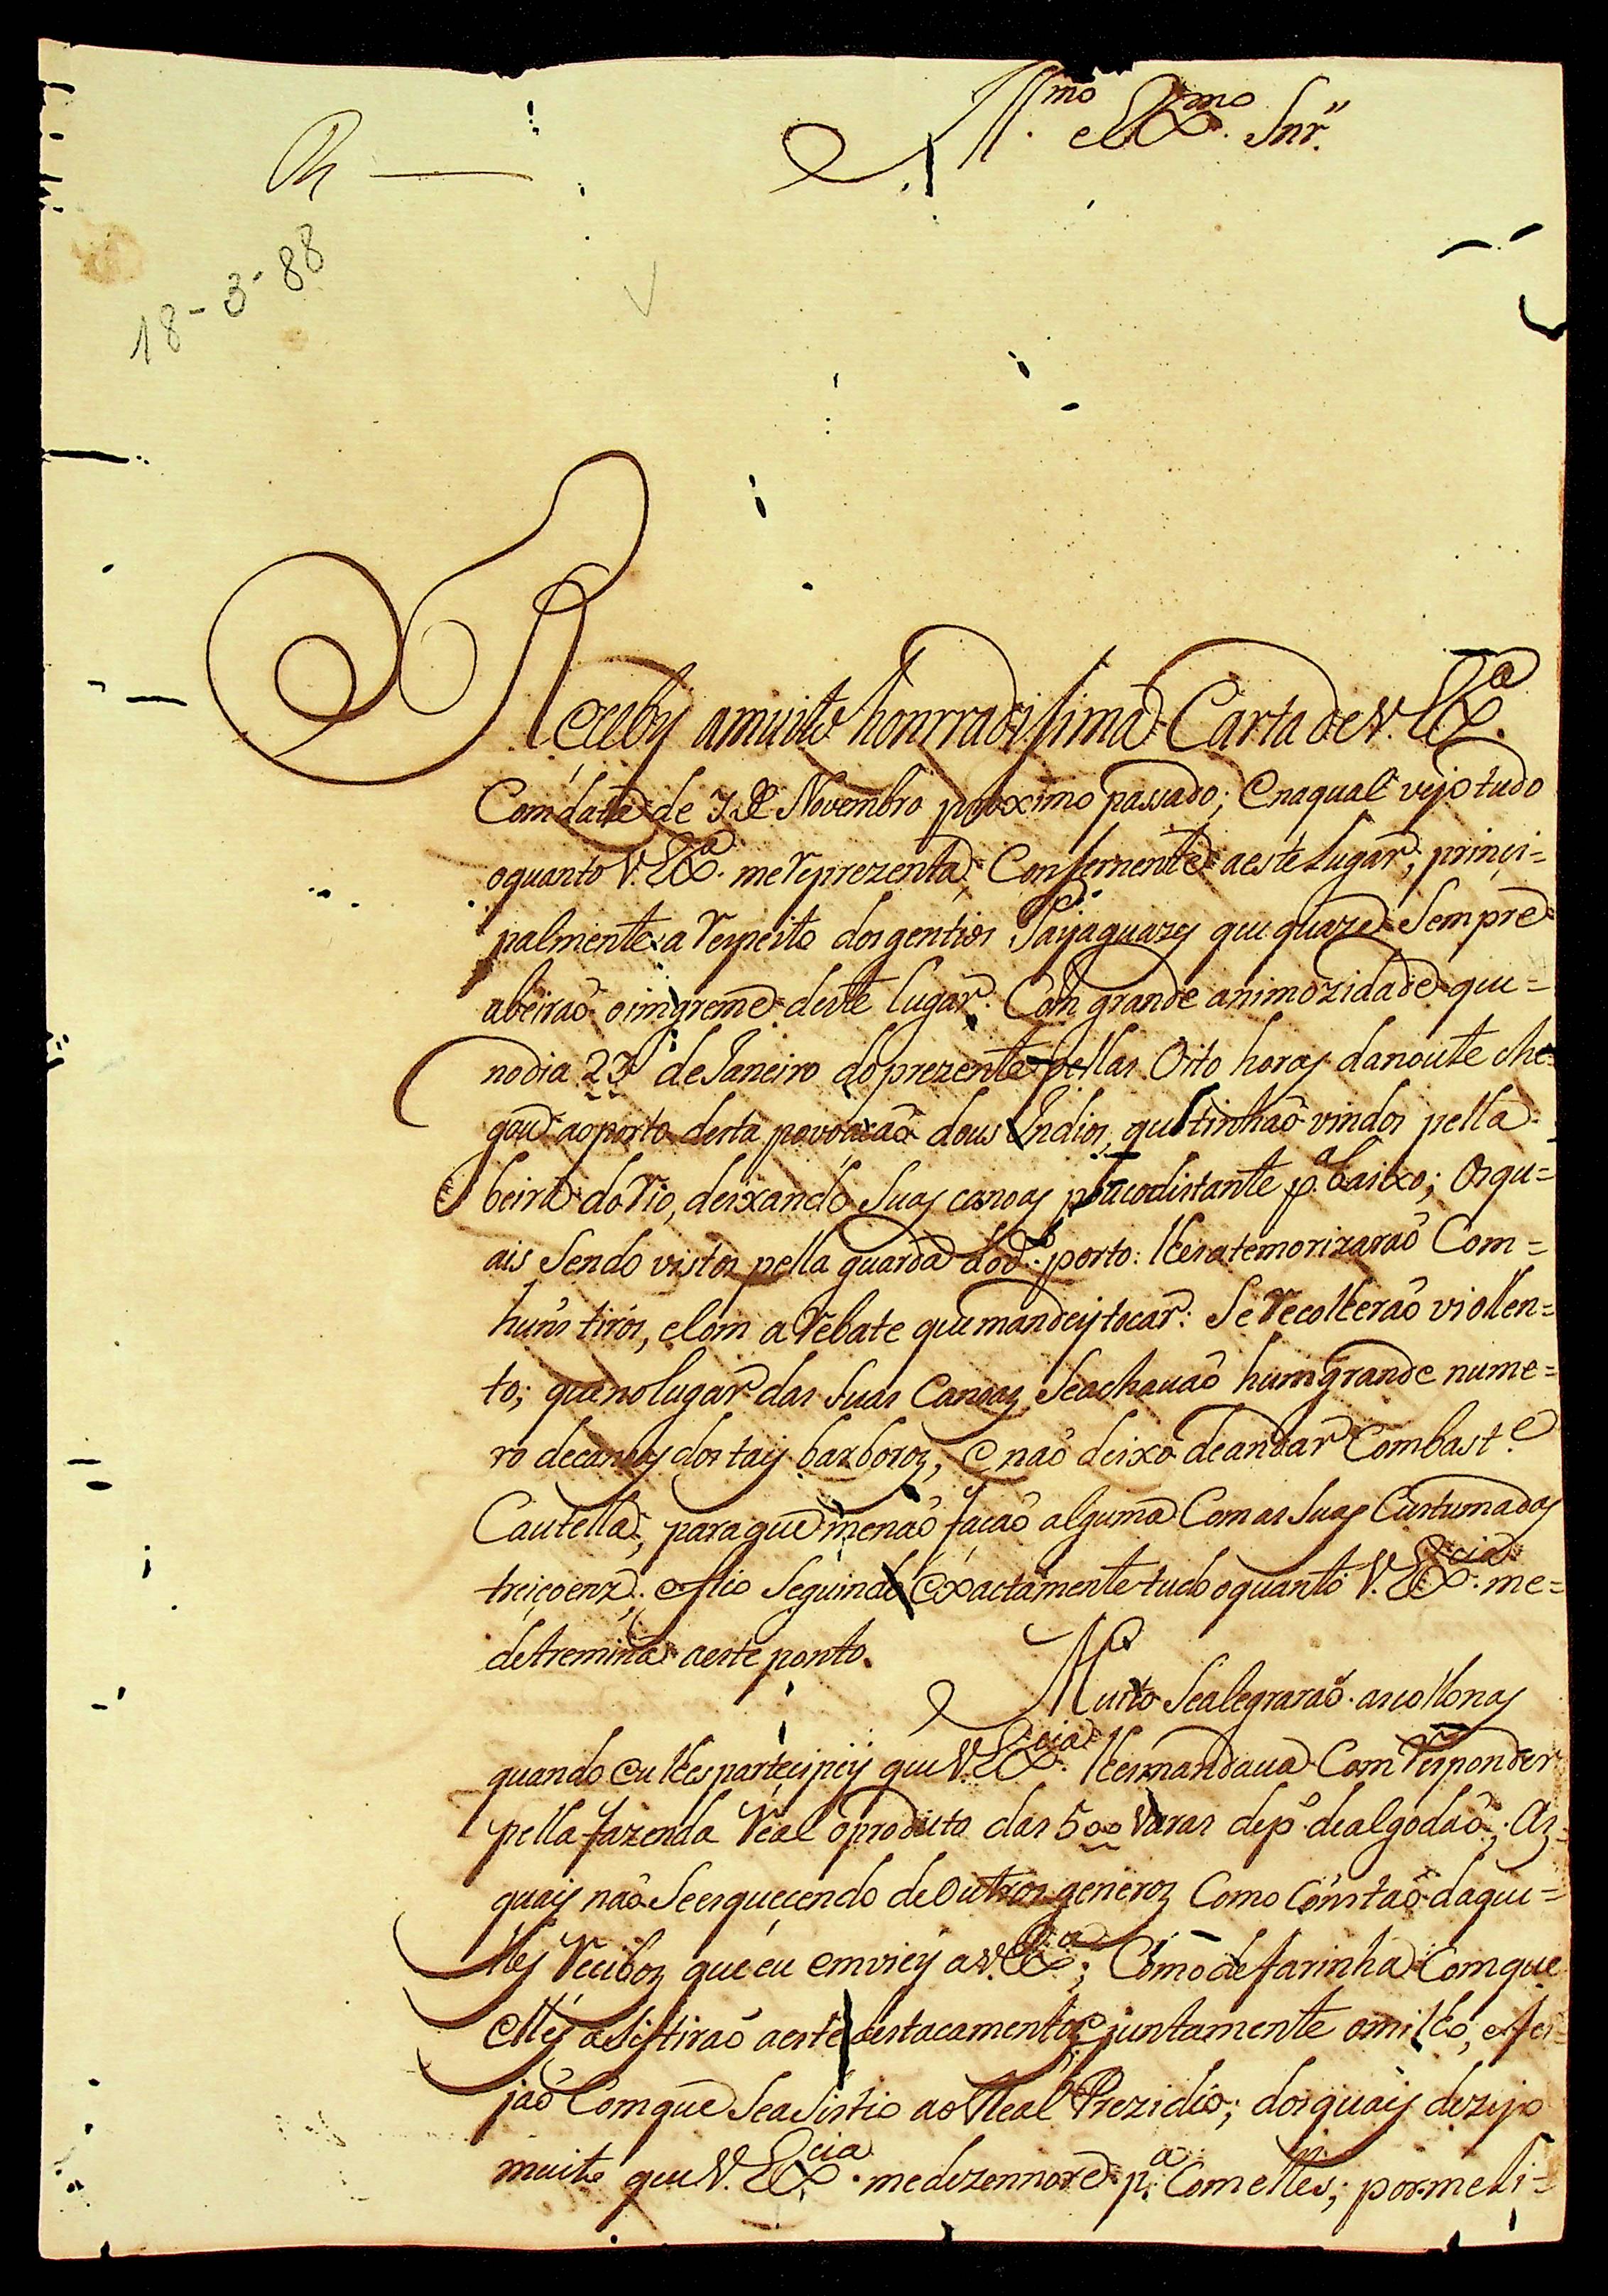 Ill.mo e Ex.mo Snr.
18-3-88
Receby a muito honrradisima Carta de V. Ex.a
Com data de 7 de Novembro proximo passado; e na qual vejo tudo
o quanto V. Ex.a me reprezenta, Consernente a este Lugar; princi=
palmente a respeito dos gentios Payaguazes que quaze Sempre
abeirão o ingreme deste lugar. Com grande animozidade que=
no dia 23 de Janeiro do prezente pellas Oito horas da noute che
gou ao porto desta povoação dous Indios, que tinhão vindos pella
beira do Rio, deixando Suas canoas pouco distante p.a baixo; Os qu=
ais Sendo vistos pella guarda do d.o porto: lhes atemorizarão Com=
huns tiros, e Com a rebate que mandey tocar: Se recolherão viollen=
to; que no lugar das Suas Canoas Se achavão hum grande nume=
ro de canoas dos tais barboros, e não deixo de andar Com bast.e
Cautella, para que me não fação alguma Com as Suas Custumadas
treiçoens. e fico Seguindo exactamente tudo o quanto V. Ex.cia me=
detremina a este ponto.
Muito Se alegrarão as collonas
quando eu lhes partecipey que V. Ex.cia lhes mandava Com responder
pella fazenda Real o produto das 500 Varas de p.o de algodão; As
quais não Se esquecendo de Outros generos Como Constão daque=
lles recibos que eu emviey a V. Ex.a; Como de farinha Com que
elles asistirão a este destacamento, e juntamente o milho, e fei=
jão Com que Se asistio ao Real Prezidio; dos quais dezejo
muito que V. Ex.cia me dezennore p.a Com elles; por me Si=